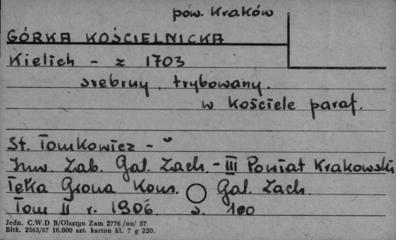 pow. Kraków
GÓRKA KOŚCIELNICKA
Kielich - z 1703
srebrny, trybowany.
w kościele paraf.
St. Tomkowicz -
Inw. Zab. Gal. Zach. - III Powiat Krakowski
Teka Grona Kons. Gal. Zach.
Tom II r. 1906. s. 100
Jedn. C.W.D B/Olsztyn Zam 2776/on/ 57
Błtk. 2563/57 10.000 szt. karton kl. 7 g 220.